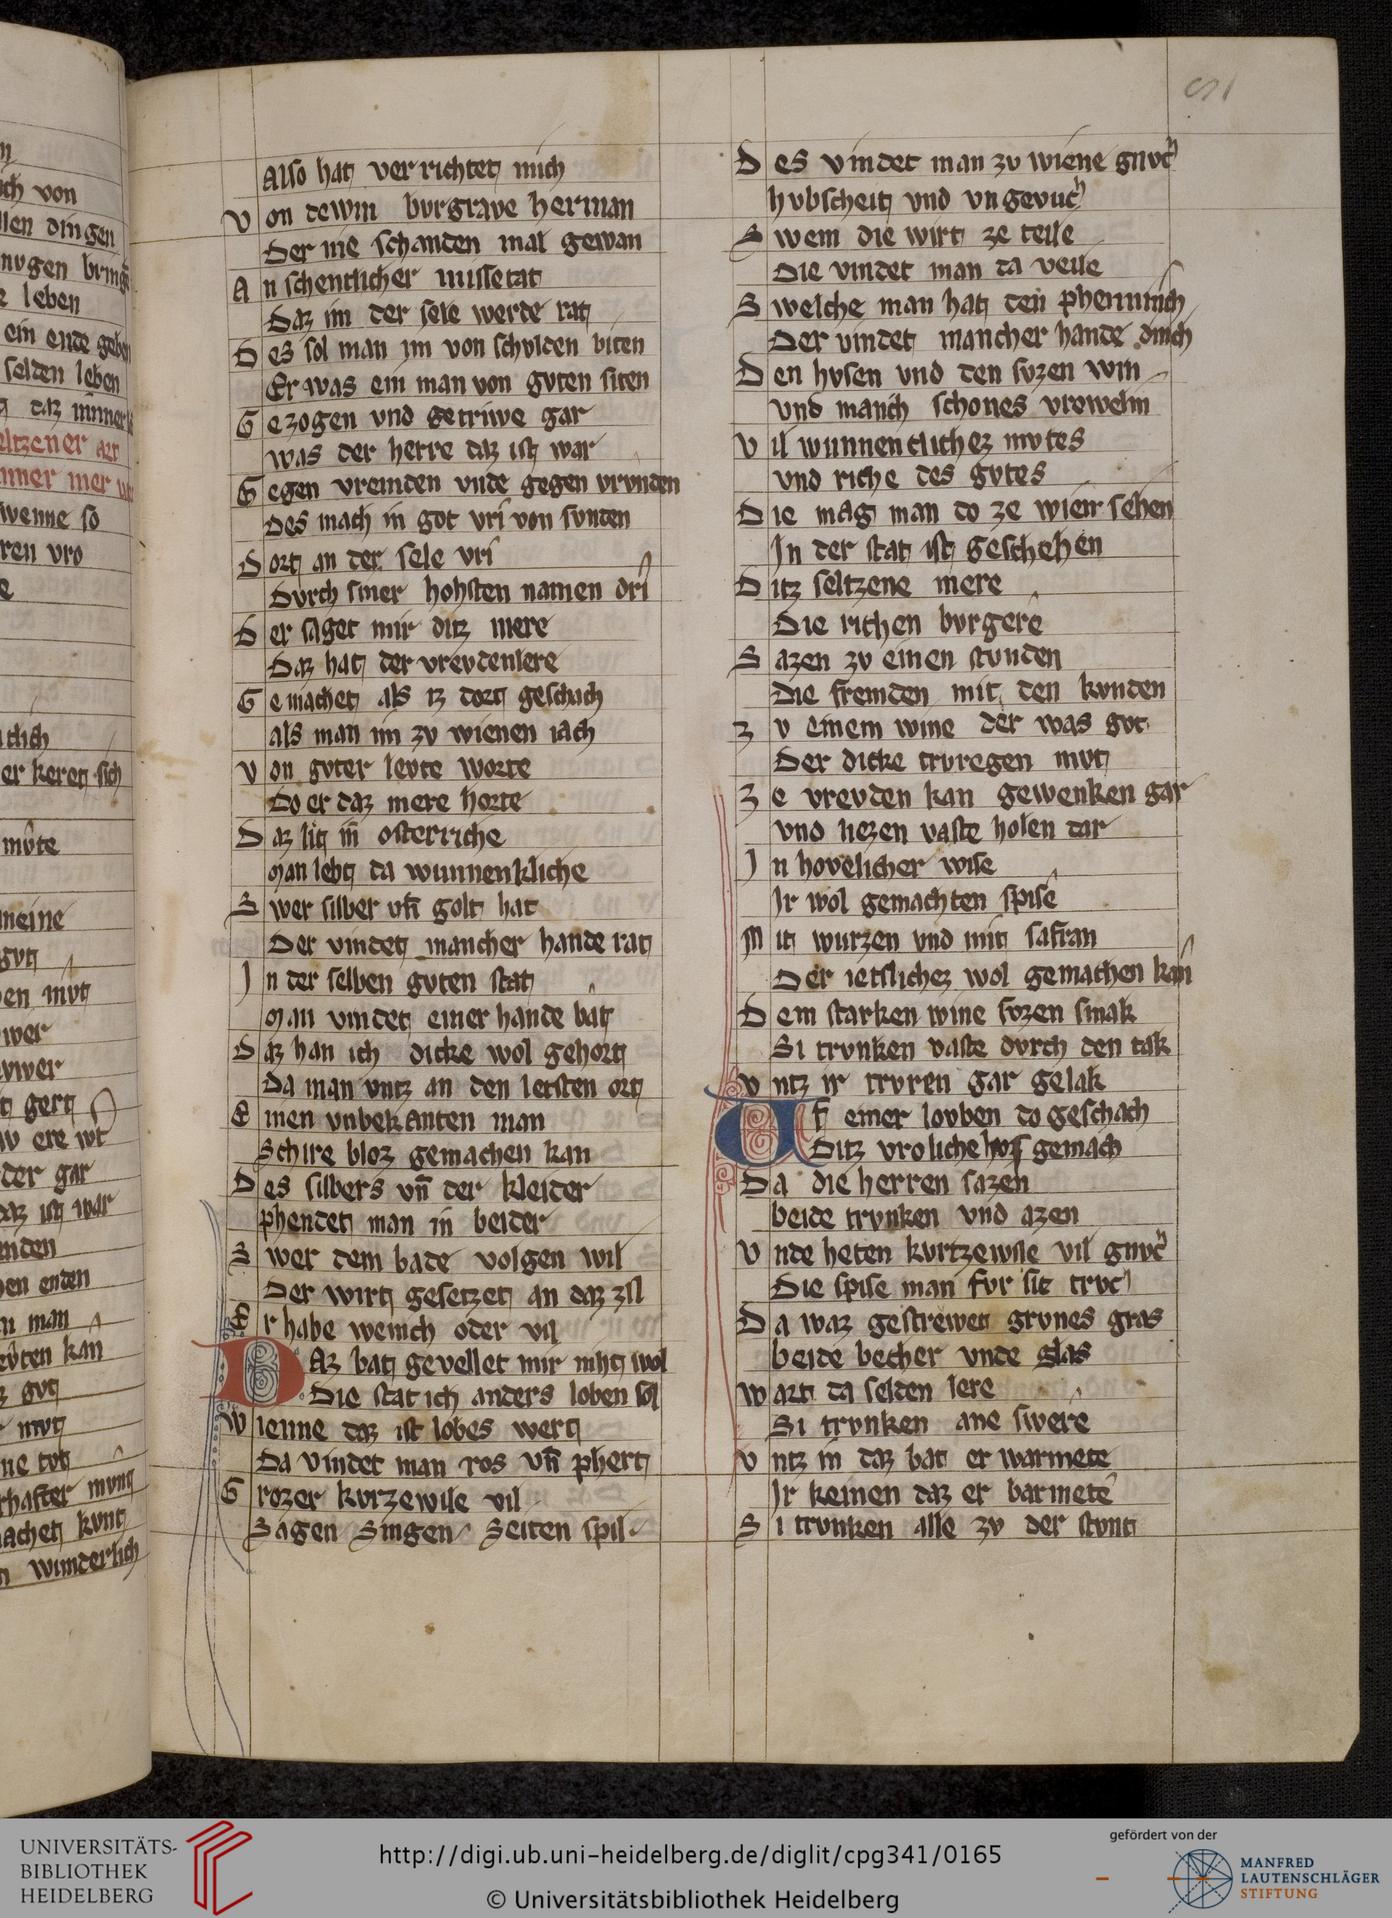 Also hat verrichtet mich
Von dewin burgrave herman
Der nie schanden mal gewan
An schentlicher missetat
Daz im der sele werde rat
Des sol man im von schulden biten
Er was ein man von guten siten
Gezogen und getriwe gar
was der herre daz ist war
Gegen vremden unde gegen vrunden
Des mach in got vri von sunden
Dort an der sele vri
Durch siner hohsten namen dri
Der saget mir ditz mere
Daz hat der vreudenlere
Gemachet als iz dort geschach
als man im zu wienen iach
Von guter leute worte
Do er daz mere horte
Daz lit in osterriche
Man lebt da wunnenkliche
Swer silber und golt hat
Der vindet mancher hande rat
In der selben guten stat
Man vindet einer hande bat
Daz han ich dicke wol gehort
Da man untz an den letsten ort
Einen unbekanten man
Schire bloz gemachen kan
Des silbers vn der kleider
phendet man in beider
Swer dem bade volgen wil
Der wirt gesetzet an daz zil
Er habe wenich oder vil
Daz bat gevellet mir niht wol
Die stat ich anders loben sol
Wienne daz ist lobes wert
Da vindet man ros vn phert
Grozer kurzewile vil
Sagen Singen Seiten spil
Des vindet man zu wiene gnuc
hubscheit und ungevuc
Swem die wirt ze teile
Die vindet man da veile
Swelche man hat den phennich
Der vindet mancher hande dinch
Den husen und den suzen win
und manich schones vrowelin
Vil wunnentlichez mutes
und riche des gutes
Die mag man do ze wien sehen
In der stat ist geschehen
Ditz seltzene mere
Die richen burgere
Sazen zu einen stunden
Die fremden mit den kunden
Zu einem wine der was gut
Der dicke truregen mut
Ze vreuden kan gewenken gar
und liezen vaste holen dar
In hovelicher wise
Ir wol gemachten spise
Mit wurzen und mit safran
Der ietslichez wol gemachen kan
Dem starken wine suzen smak
Si trunken vaste durch den tak
Untz ir truren gar gelak
Uf einer louben do geschach
Ditz vroliche gemach
Da die herren sazen
beide trunken und azen
Unde heten kurtzewile vil gnuc
Die spise man fur sie truc
Da waz gestrewet grunes gras
beide becher unde glas
Wart da selden lere
Si trunken ane swere
Untz in daz bat erwarmete
Ir keinen daz erbarmete
Si trunken alle zu der stunt
UNIVERSITÄTS-
BIBLIOTHEK
HEIDELBERG
http://digi.ub.uni-heidelberg.de/diglit/cpg341/0165
© Universitätsbibliothek Heidelberg
gefördert von der
MANFRED
LAUTENSCHLÄGER
STIFTUNG